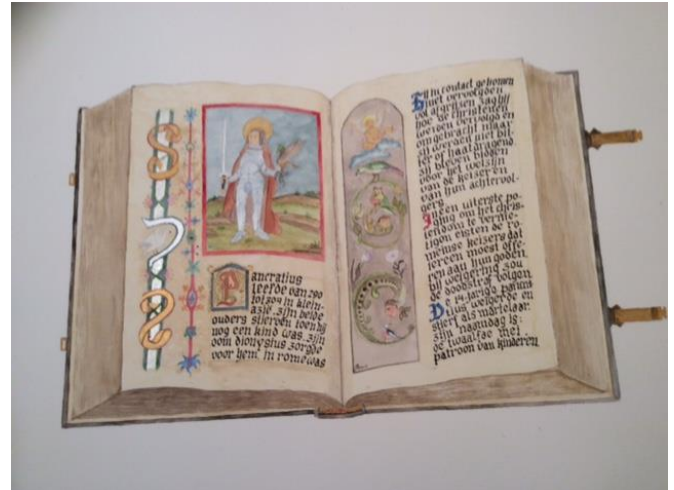 Pancratius
leefde van 290
tot 304 in klein-
azië. zijn beide
ouders stierven toen hij
nog een kind was. zijn
oom dionysius zorgde
voor hem. in rome was
hij in contact gekomen
met vervolgden
vol afgrijzen zag hij
hoe de christenen
werden vervolgd en
omgebracht maar
zij werden niet bit-
ter of haatdragend.
zij bleven bidden
voor het welzijn
van de keizer en
van hun achtervol-
gers.
In een uiterste po-
ging om het chris-
tendom te vernie-
tigen eisten de ro-
meinse keizers dat
iedereen moest offe-
ren aan hun goden.
bij weigering zou
de doodstraf volgen.
De 14-jarige pancra-
tius weigerde en
stierf als martelaar.
zijn naamdag is:
de twaalfde mei.
patroon van kinderen